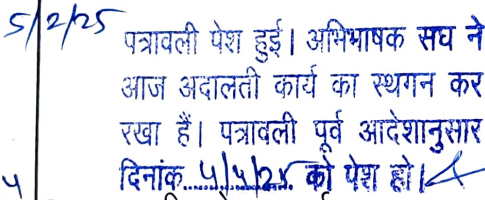 5/2/25
पत्रावली पेश हुई। अभिभाषक सघ ने
आज अदालती कार्य का स्थगन कर
रखा हैं। पत्रावली पूर्व आदेशानुसार
दिनांक..4/4/25. को पेश हो।
4